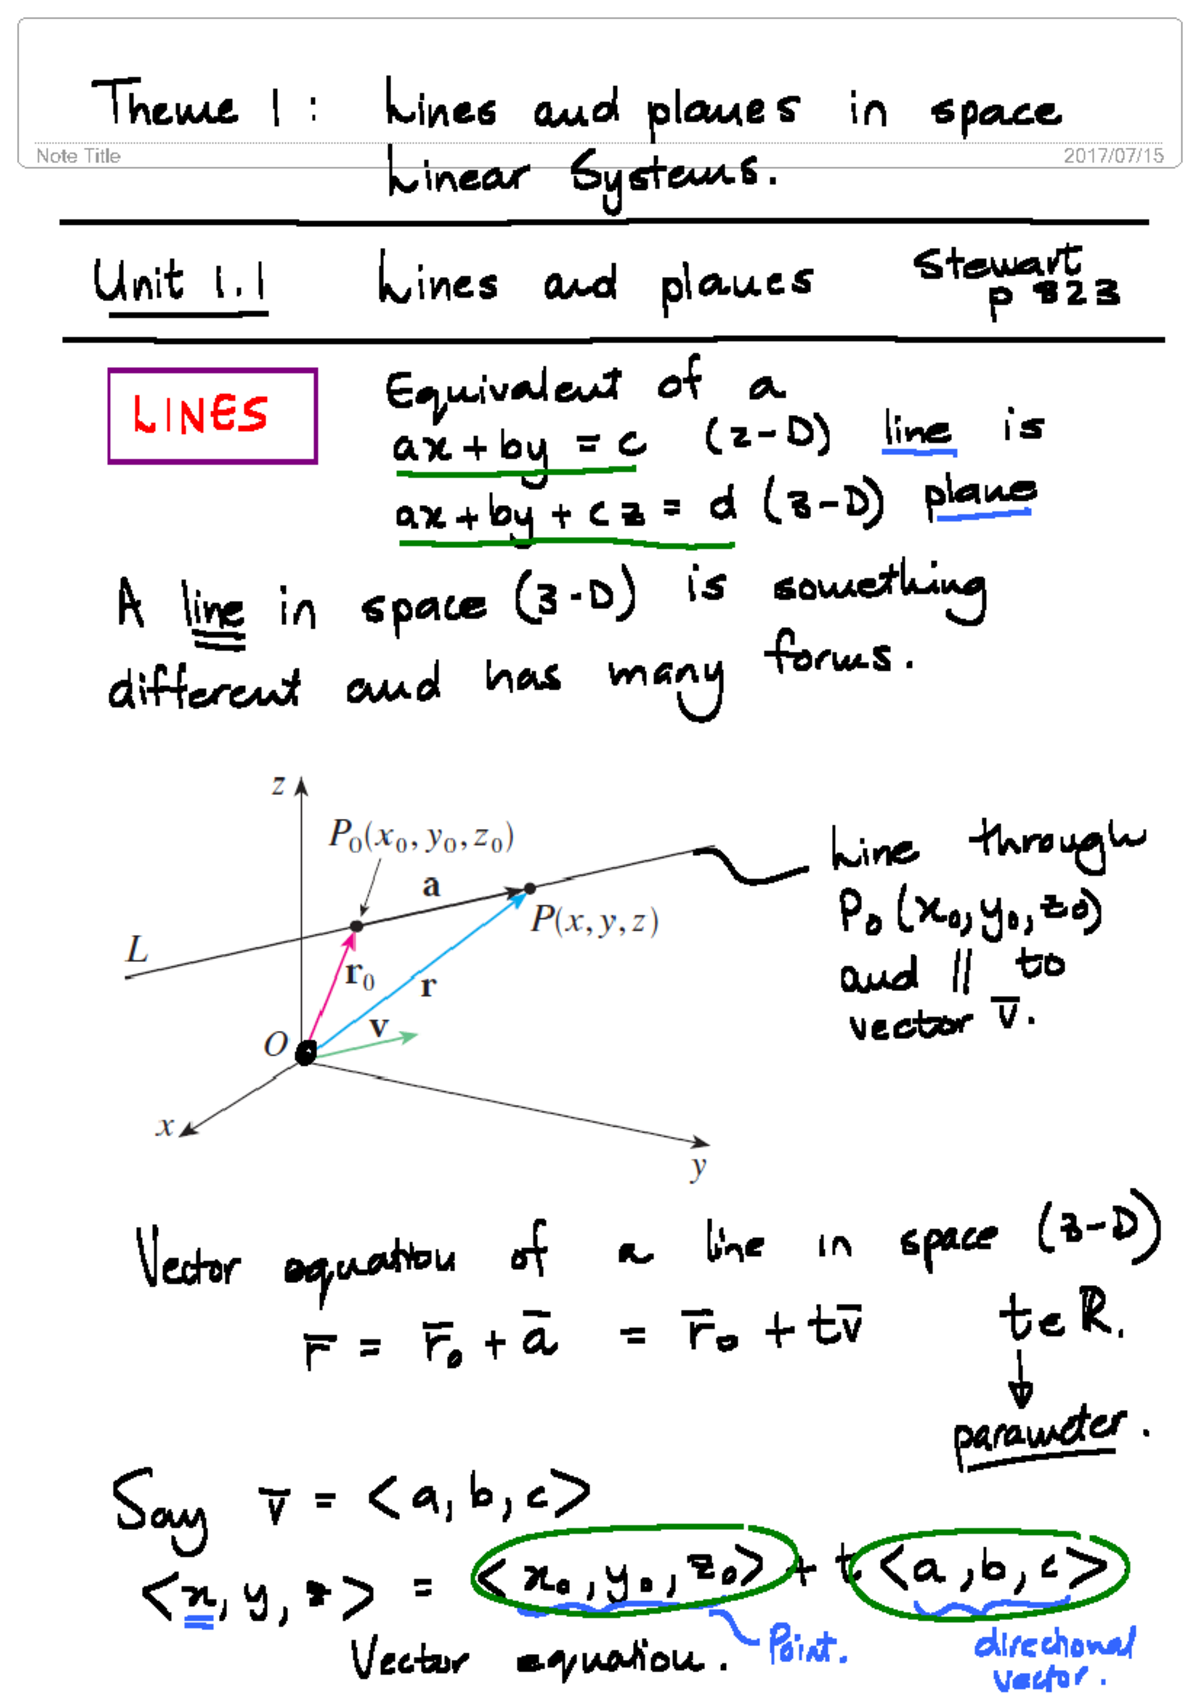 Theme 1 : Lines and planes in space
Note Title 2017/07/15
Linear Systems.
Unit 1.1 Lines and planes Stewart p 823
LINES
Equivalent of a
ax + by = c (2-D) line is
ax + by + cz = d (3-D) plane
A line in space (3-D) is something
different and has many forms.
z
P₀(x₀, y₀, z₀)
a
P(x, y, z)
L
r₀
r
v
O
x
y
Line through
P₀ (x₀, y₀, z₀)
and || to
vector v̅.
Vector equation of a line in space (3-D)
r̅ = r̅₀ + a̅ = r̅₀ + tv̅ t ∈ ℝ.
↓
parameter.
Say v̅ = <a, b, c>
<x, y, z> = <x₀, y₀, z₀> + t <a, b, c>
Vector equation. Point. directional vector.